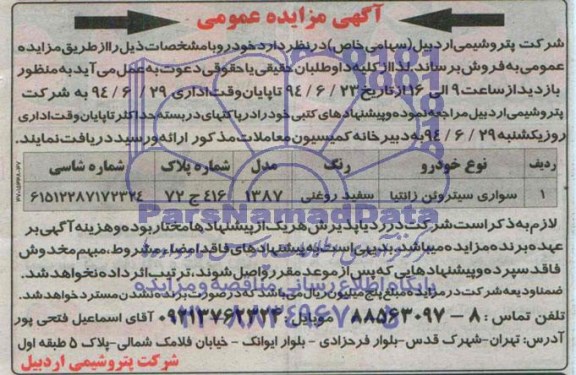 آگهی مزایده عمومی
شرکت پتروشیمی اردبیل (سهامی خاص) در نظر دارد خودرو با مشخصات ذیل را از طریق مزایده
عمومی به فروش برساند، لذا از کلیه داوطلبان حقیقی یا حقوقی دعوت به عمل می آید به منظور
بازدید از ساعت ۹ الی ۱۶ از تاریخ ۲۳ / ۶ / ۹۴ تا پایان وقت اداری ۲۹ / ۶ / ۹۴ به شرکت
پتروشیمی اردبیل مراجعه نموده و پیشنهادهای کتبی خود را در پاکتهای در بسته حداکثر تا پایان وقت اداری
روز یکشنبه ۲۹ / ۶ / ۹۴ به دبیرخانه کمیسیون معاملات مذکور ارائه و رسید دریافت نمایند.
ردیف نوع خودرو رنگ مدل شماره پلاک شماره شاسی
۱ سواری سیتروئن زانتیا سفید روغنی ۱۳۸۷ ۴۱۶ ج ۷۲ ۶۱۵۱۲۲۸۷۱۷۲۳۲۴
لازم به ذکر است شرکت در رد یا پذیرش هر یک از پیشنهادها مختار بوده و هزینه آگهی بر
عهده برنده مزایده میباشد، بدیهی است به پیشنهادهای فاقد امضاء، مشروط، مبهم مخدوش
فاقد سپرده و پیشنهادهایی که پس از موعد مقرر واصل شوند، ترتیب اثر داده نخواهد شد.
ضمنا ودیعه شرکت در مزایده مبلغ پنج میلیون ریال می باشد که در صورت برنده نشدن مسترد خواهد شد.
تلفن تماس: ۸ - ۸۸۵۶۳۰۹۷ موبایل: ۰۹۲۱۳۷۶۲۳۲۴ آقای اسماعیل فتحی پور
آدرس: تهران- شهرک قدس- بلوار فرحزادی - بلوار ایوانک - خیابان فلامک شمالی- پلاک ۵ طبقه اول
شرکت پتروشیمی اردبیل
ParsNamadData
پایگاه اطلاع رسانی مناقصه و مزایده